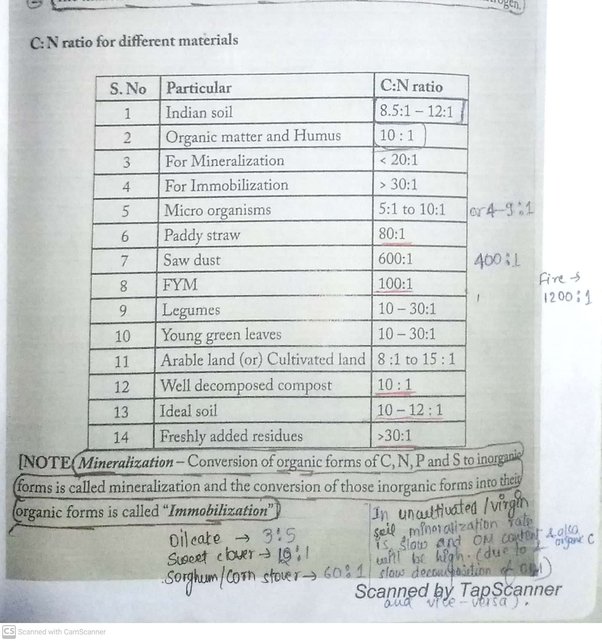 ogen.
C:N ratio for different materials
S. No Particular C:N ratio
1 Indian soil 8.5:1 – 12:1
2 Organic matter and Humus 10 : 1
3 For Mineralization < 20:1
4 For Immobilization > 30:1
5 Micro organisms 5:1 to 10:1 or 4-9:1
6 Paddy straw 80:1
7 Saw dust 600:1 400:1
8 FYM 100:1
Fire →
1200:1
9 Legumes 10 – 30:1
10 Young green leaves 10 – 30:1
11 Arable land (or) Cultivated land 8 :1 to 15 : 1
12 Well decomposed compost 10 : 1
13 Ideal soil 10 – 12 : 1
14 Freshly added residues >30:1
[NOTE (Mineralization – Conversion of organic forms of C, N, P and S to inorganic
forms is called mineralization and the conversion of those inorganic forms into their
organic forms is called "Immobilization")
Oilcake → 3:5
Sweet clover → 12:1
Sorghum/Corn stover → 60:1
In uncultivated/virgin
soil mineralization rate
is slow and OM content & also organic C
will be high. (due to
slow decomposition of OM)
and vice-versa).
Scanned by TapScanner
CS Scanned with CamScanner